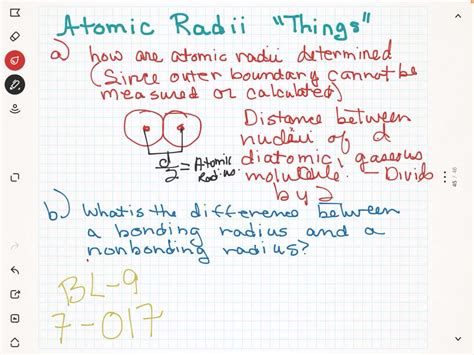 Atomic Radii "Things"
a) how are atomic radii determined
(Since outer boundary cannot be
measured or calculated)
Distance between
nuclei of a
diatomic, gaseous
molecule. - Divide
by 2
d/2 = Atomic
Radius
b) What is the difference between
a bonding radius and a
nonbonding radius?
BL-9
7-017